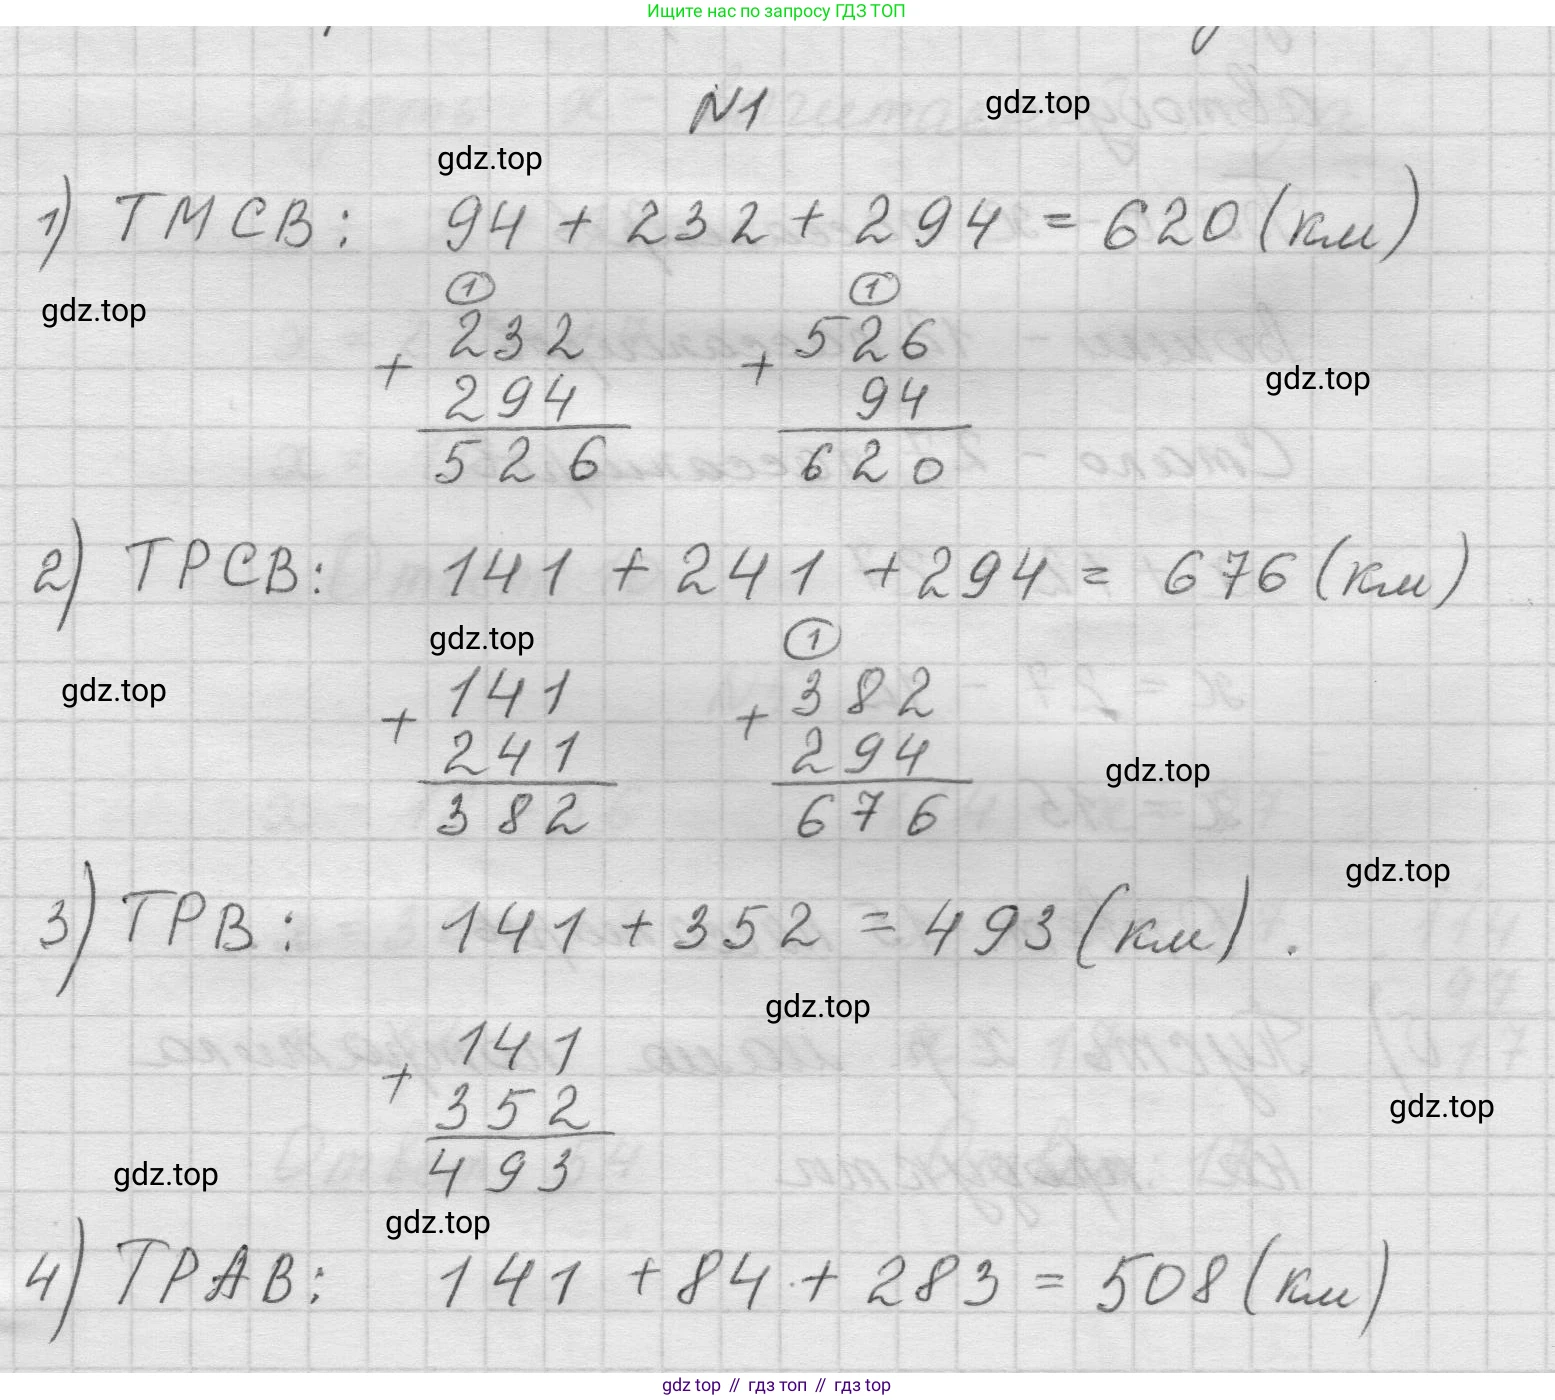 Ищите нас по запросу ГДЗ ТОП
N1
gdz.top
gdz.top
1) ТМСВ: 94 + 232 + 294 = 620 (км)
gdz.top
1 1
+ 232 + 526
gdz.top
294 94
526 620
2) ТРСВ: 141 + 241 + 294 = 676 (км)
gdz.top
1
gdz.top
+ 141 + 382
241 294
gdz.top
382 676
gdz.top
3) ТРВ: 141 + 352 = 493 (км).
gdz.top
+ 141
352
gdz.top
493
gdz.top
gdz.top
4) ТРАВ: 141 + 84 + 283 = 508 (км)
gdz.top // гдз топ // гдз top